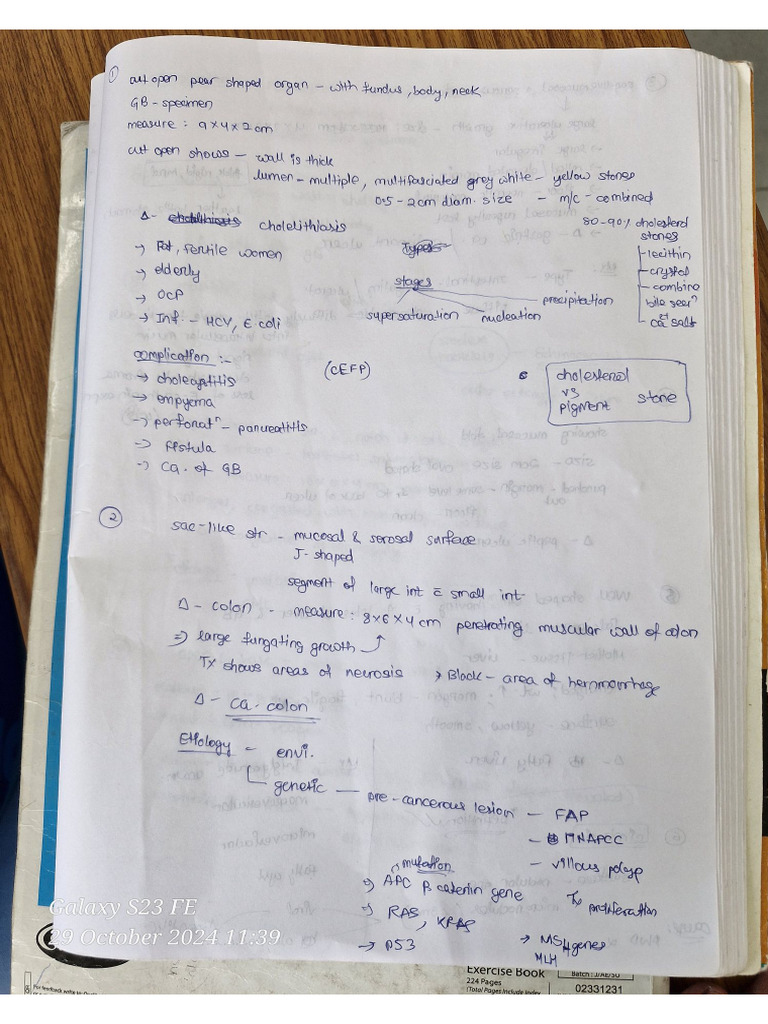 ①
cut open pear shaped organ - with fundus, body, neck
GB - specimen
measure: 9x4x2 cm
cut open shows - wall is thick
lumen - multiple, multifasciated grey white - yellow stones
0.5 - 2cm diam. size - m/c - combined
Δ - cholelithiasis
80-90% cholesterol stones
lecithin
crystal
combine
Ca2+ salt
→ Fat, fertile women
→ elderly
→ OCP
→ Inf. - HCV, E. coli
Types
stages
supersaturation nucleation precipitation
complication :-
(CEFP)
→ cholecystitis
→ empyema
→ perforatn - pancreatitis
→ fistula
→ Ca. of GB
cholesterol
vs
pigment stone
②
sac-like str - mucosal & serosal surface
J-shaped
segment of large int c̄ small int.
Δ - colon - measure: 8x6x4 cm penetrating muscular wall of colon
⇒ large fungating growth
Tx shows areas of necrosis → Black - area of hemmorrhage
Δ - Ca. colon
Etiology - envi.
genetic - pre-cancerous lesion - FAP
- HNAPCC
- villous polyp
mutation
⇒ APC β catenin gene
Tx proliferation
⇒ RAS, KRAS
→ P53
→ MSH genes
MLH
Galaxy S23 FE
29 October 2024 11:39
Exercise Book
224 Pages
(Total Pages Include Index
Batch: J/AE/SO
02331231